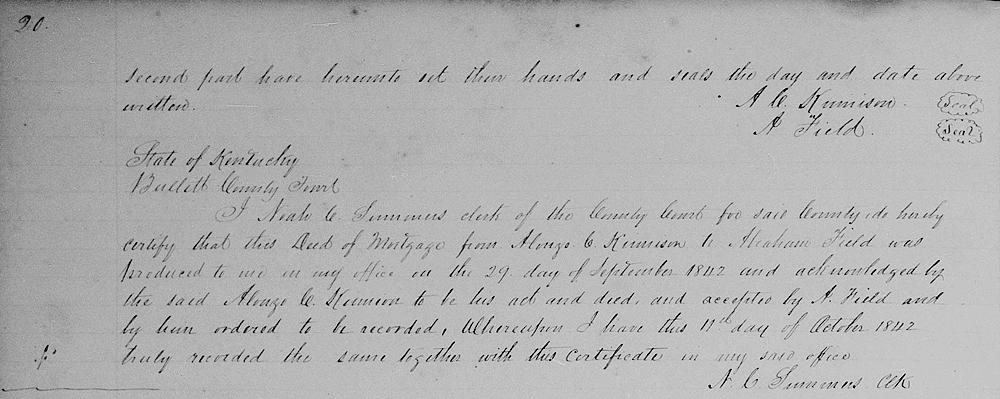 20.
second part have hereunto set their hands and seals the day and date above
written.
A C. Kennison. Seal
A Field. Seal
State of Kentucky
Bullitt County Court
I Noah C. Summers clerk of the County Court for said County do hereby
certify that this Deed of Mortgage from Alonzo C Kennison to Abraham Field was
produced to me in my office on the 29. day of September 1842 and acknowledged by
the said Alonzo C. Kennison to be his act and deed, and accepted by A. Field and
by him ordered to be recorded, Whereupon I have this 11th day of October 1842
truly recorded the same together with this certificate in my said office
N. C. Summers Clk